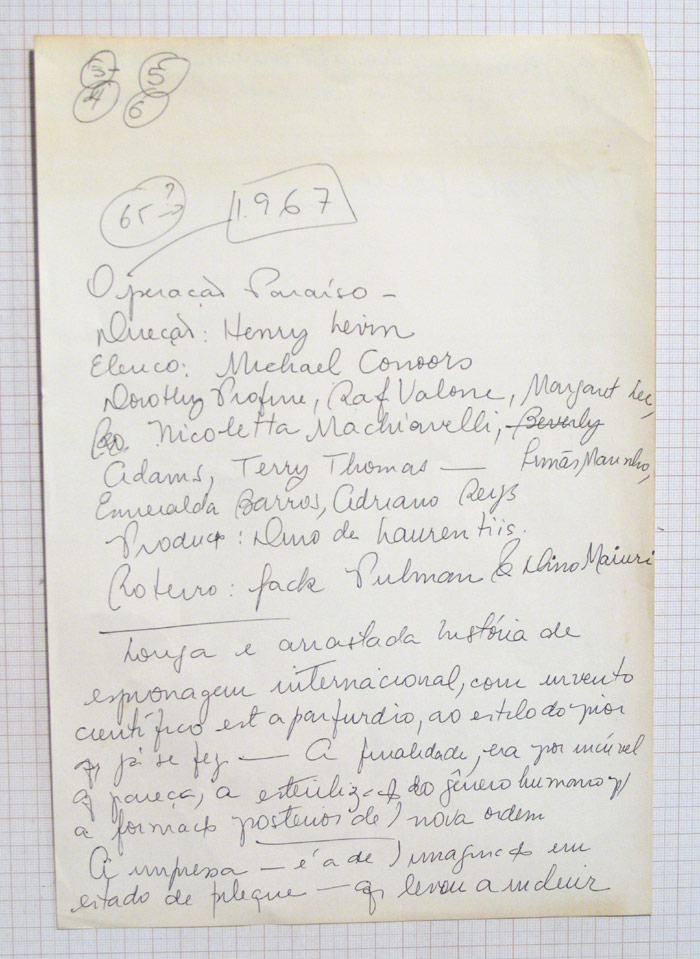 3 5
4 6
65 → ? 1967
Operação Paraíso –
Direção: Henry Levin
Elenco: Michael Conoors
Dorothy Profine, Raf Valone, Margaret Lee,
Nicoletta Machiavelli, Beverly
Adams, Terry Thomas —
Esmeralda Barros, Adriano Reys
Dino de Laurentiis.
Roteiro: Jack Pulman & Dino Maiuri
Longa e arrastada história de
espionagem internacional, com invento
científico estapafurdio, ao estilo do pior
q já se fez — A finalidade, era por incrível
q pareça, a do gênero humano p/
a posterior de nova ordem
A — é a de em
estado de — q levou a incluir